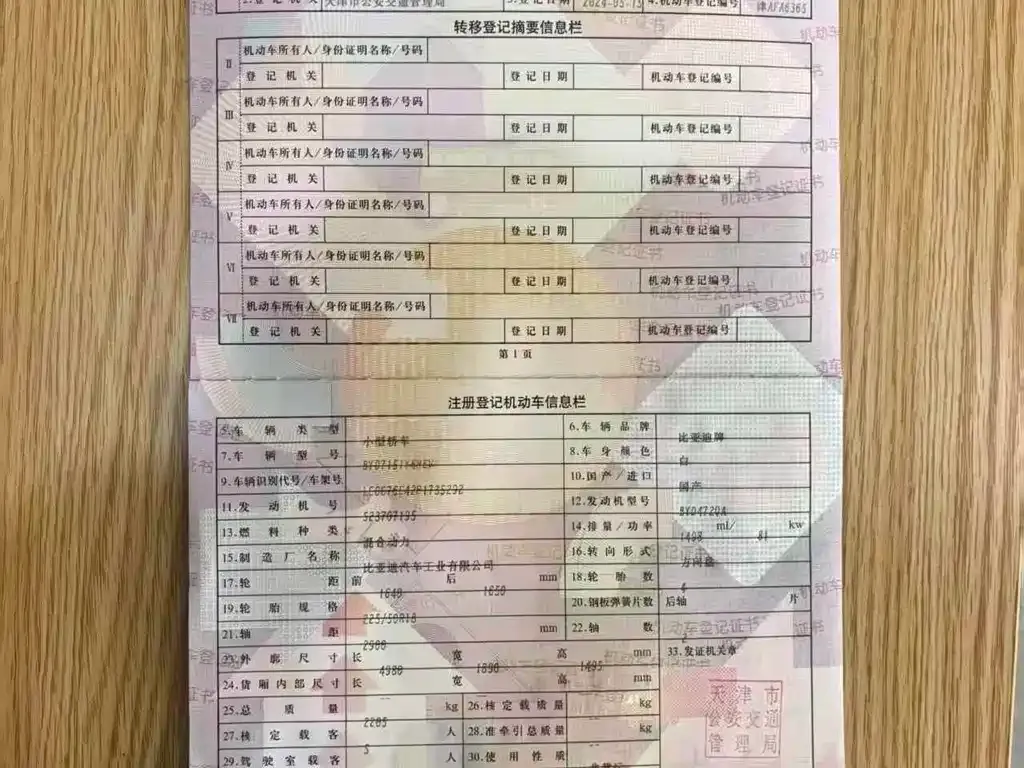 2.登记机关 天津市公安交通管理局 3.登记日期 2024-03-15 4.机动车登记编号 津AFA6365
转移登记摘要信息栏
Ⅱ 机动车所有人/身份证明名称/号码
登记机关 登记日期 机动车登记编号
Ⅲ 机动车所有人/身份证明名称/号码
登记机关 登记日期 机动车登记编号
Ⅳ 机动车所有人/身份证明名称/号码
登记机关 登记日期 机动车登记编号
Ⅴ 机动车所有人/身份证明名称/号码
登记机关 登记日期 机动车登记编号
Ⅵ 机动车所有人/身份证明名称/号码
登记机关 登记日期 机动车登记编号
Ⅶ 机动车所有人/身份证明名称/号码
登记机关 登记日期 机动车登记编号
第1页
注册登记机动车信息栏
5.车辆类型 小型轿车 6.车辆品牌 比亚迪牌
7.车辆型号 8.车身颜色 白
9.车辆识别代号/车架号 10.国产/进口 国产
11.发动机号 523707195 12.发动机型号 BYD472QA
13.燃料种类 混合动力 14.排量/功率 1498 ml/ 81 kw
15.制造厂名称 比亚迪汽车工业有限公司 16.转向形式 方向盘
17.轮距 前 1640 后 1650 mm 18.轮胎数 4
19.轮胎规格 225/50R18 20.钢板弹簧片数 后轴 片
21.轴距 2900 mm 22.轴数 2
23.外廓尺寸 长 4980 宽 1890 高 1495 mm 33.发证机关章
24.货厢内部尺寸 长 宽 高 mm
25.总质量 2205 kg 26.核定载质量 kg
27.核定载客 5 人 28.准牵引总质量 kg
29.驾驶室载客 人 30.使用性质
天津市
公安交通
管理局